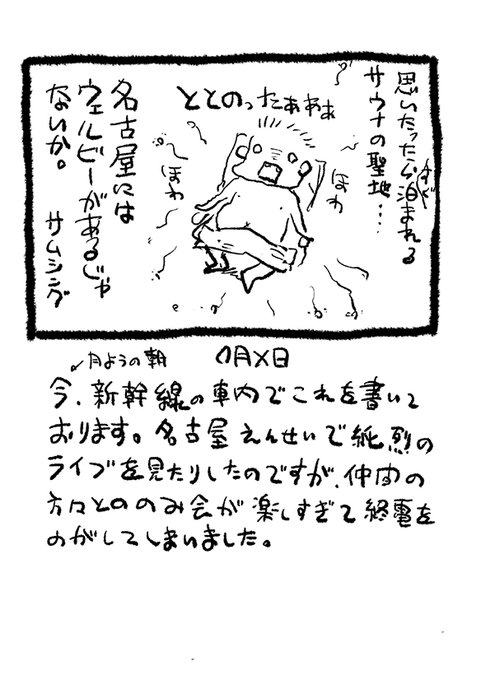 思いたったらすぐ泊まれる
サウナの聖地…
ととのったあああ
ほわ
ほわ
名古屋には
ウェルビーがあるじゃ
ないか。
サムシング
月ようの朝
○月×日
今、新幹線の車内でこれを書いて
おります。名古屋えんせいで純烈の
ライブを見たりしたのですが、仲間の
方々とののみ会が楽しすぎて終電を
のがしてしまいました。